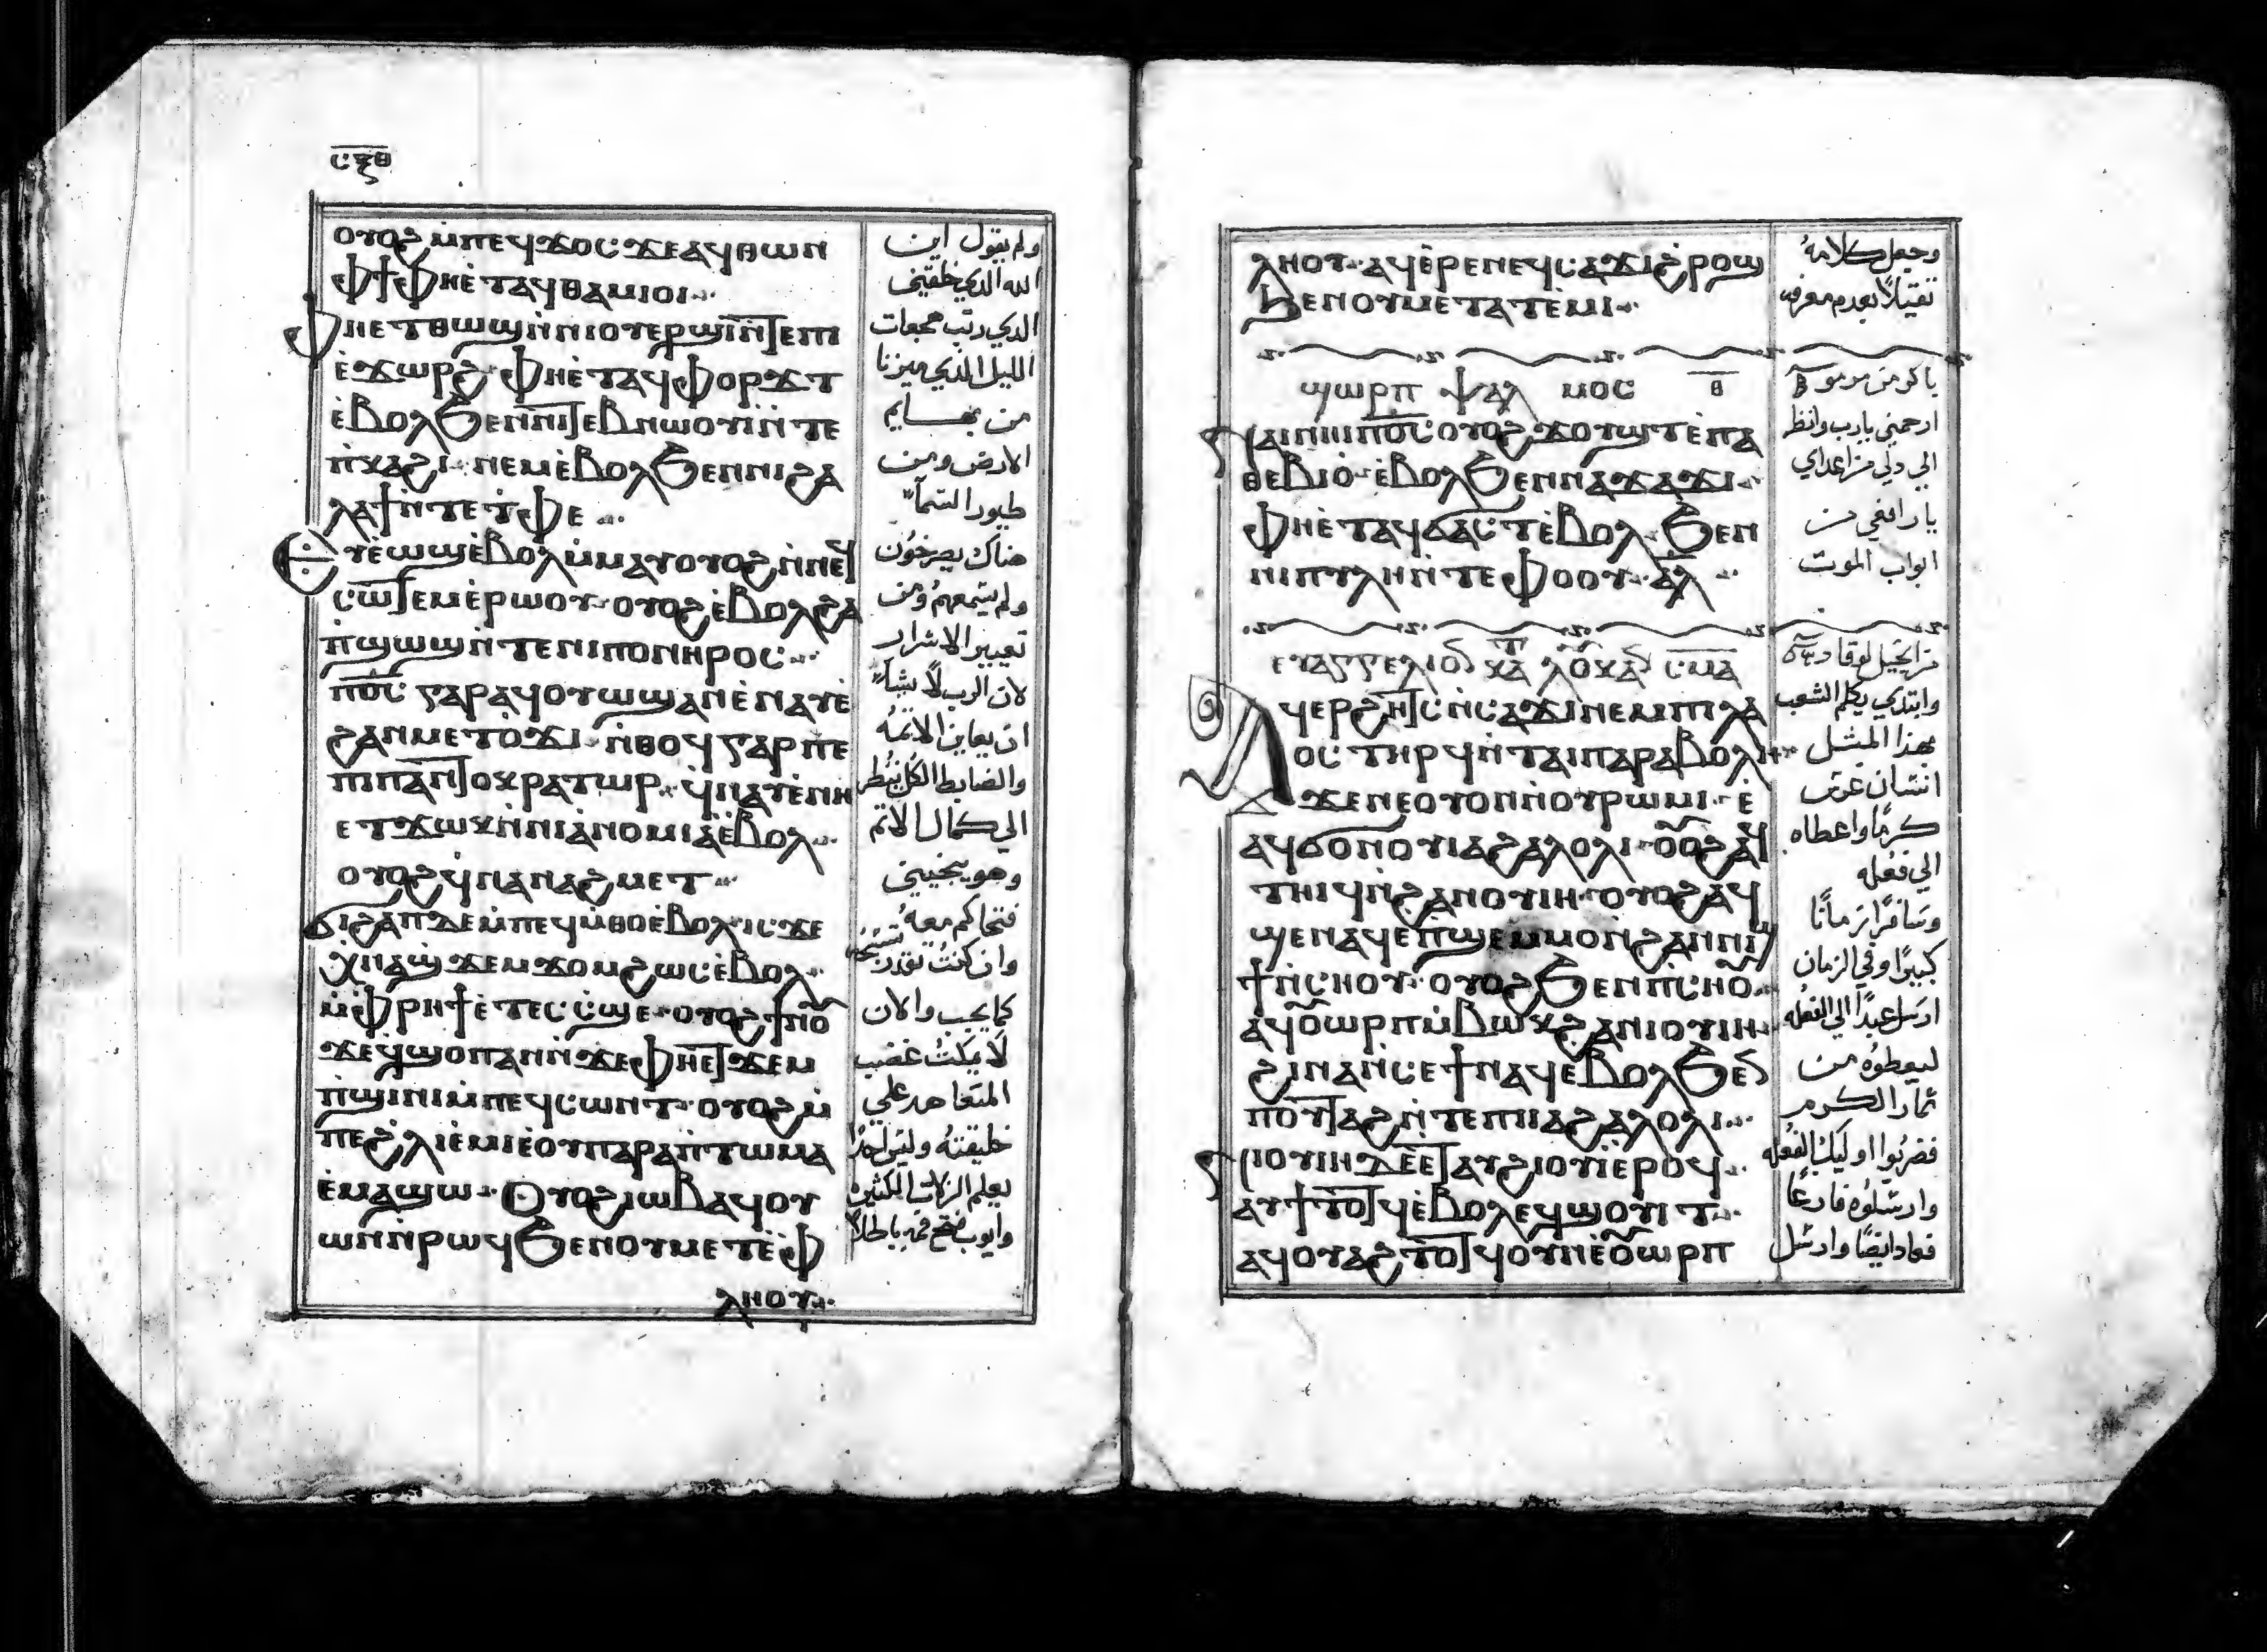 ⲥⲝⲑ
ⲟⲩⲟϩ ⲙ̀ⲡⲉϥϫⲟⲥ ϫⲉ ⲁϥⲑⲱⲛ
ⲫϯ ⲫⲏⲉ̀ⲧⲁϥⲑⲁⲙⲓⲟⲓ
ⲫⲏⲉⲧⲑⲱϣ ⲛ̀ⲛⲓⲟⲩⲉⲣϣⲓ ⲛ̀ⲧⲉⲡⲓ
ⲉ̀ϫⲱⲣϩ ⲫⲏⲉ̀ⲧⲁϥⲫⲟⲣϫⲧ
ⲉ̀ⲃⲟⲗ ϧⲉⲛ ⲛⲓⲧⲉⲃⲛⲱⲟⲩⲓ̀ ⲛ̀ⲧⲉ
ⲡ̀ⲭⲁϩⲓ ⲛⲉⲙ ⲉ̀ⲃⲟⲗ ϧⲉⲛ ⲛⲓϩⲁ
ⲗⲁϯ ⲛ̀ⲧⲉ ⲧ̀ⲫⲉ
ⲉⲩⲉ̀ⲱϣ ⲉ̀ⲃⲟⲗ ⲙ̀ⲙⲁⲩ ⲟⲩⲟϩ ⲛ̀ⲛⲉϥ
ⲥⲱⲧⲉⲙ ⲉ̀ⲣⲱⲟⲩ ⲟⲩⲟϩ ⲉ̀ⲃⲟⲗϩⲁ
ⲡ̀ϣⲱϣ ⲛ̀ⲧⲉ ⲛⲓⲡⲟⲛⲏⲣⲟⲥ
ⲡⲟ̅ⲥ̅ ⲅⲁⲣ ⲁϥⲟⲩⲱϣ ⲁⲛ ⲉ̀ⲛⲁⲩ ⲉ̀
ϩⲁⲛⲙⲉⲧϭ̀ⲟϫⲓ ⲛ̀ⲑⲟϥ ⲅⲁⲣ ⲡⲉ
ⲡⲓⲡⲁⲛⲧⲟⲕⲣⲁⲧⲱⲣ ϥ̀ⲛⲁⲩ ⲉ̀ⲛⲏ
ⲉⲧϫⲱⲕ ⲛ̀ⲛⲓⲁ̀ⲛⲟⲙⲓⲁ ⲉ̀ⲃⲟⲗ
ⲟⲩⲟϩ ϥ̀ⲛⲁⲛⲁϩⲙⲉⲧ
ϭⲓϩⲁⲡ ⲇⲉ ⲙ̀ⲡⲉϥⲙ̀ⲑⲟ ⲉ̀ⲃⲟⲗ ⲓⲥϫⲉ
ⲭ̀ⲛⲁϣϫⲉⲙϫⲟⲙ ϩⲱⲥ ⲉ̀ⲃⲟⲗ
ⲙ̀ⲫⲣⲏϯ ⲉ̀ⲧⲉⲥⲥ̀ϣⲉ ⲟⲩⲟϩ ϯⲛⲟⲩ
ϫⲉ ϥ̀ϣⲟⲡ ⲁⲛ ⲛ̀ϫⲉ ⲫⲏⲉⲧϫⲉⲙ
ⲡ̀ϣⲓⲛⲓ ⲙ̀ⲡⲉϥⲥⲱⲛⲧ ⲟⲩⲟϩ ⲙ̀
ⲡⲉϩ̀ⲗⲓ ⲉ̀ⲙⲓ ⲉ̀ⲟⲩⲡⲁⲣⲁⲡ̀ⲧⲱⲙⲁ
ⲉ̀ⲙⲁϣⲱ ⲟⲩⲟϩ ⲓⲱⲃ ⲁϥⲟⲩ
ⲱⲛ ⲛ̀ⲣⲱϥ ϧⲉⲛ ⲟⲩⲙⲉⲧⲉ̀ⲫ
ⲗⲏⲟⲩ
ولم يقول اين
الله الذي خلقني
الذي رتب هجعات
الليل الذي ميزنا
من بهايم
الارض ومن
طيور السمآء
هناك يصرخون
ولم يسمعهم ومن
تعيير الاشرار
لان الرب لا يشآء
ان يعاين الاثمه
والضابط الكل ينظر
الي كمال الاثم
وهو ينجيني
فتحاكم معه
وان كنت تقدر تسبحه
كما يجب والان
لا يمكث غضب
المتعاهد علي
خليقته وليس احدًا
يعلم الزلات الكثيره
وايوب فتح فمه باطلاً
ⲗⲏⲟⲩ ⲁϥⲉ̀ⲣⲉ ⲛⲉϥⲥⲁϫⲓ ϩ̀ⲣⲟϣ
ϧⲉⲛ ⲟⲩⲙⲉⲧⲁⲧⲉ̀ⲙⲓ
ϣⲱⲣⲡ ⲯⲁⲗ ⲙⲟⲥ ⲑ̅
ⲛⲁⲓ ⲛⲏⲓ ⲡⲟ̅ⲥ̅ ⲟⲩⲟϩ ϫⲟⲩϣⲧ ⲉ̀ⲡⲁ
ⲑⲉⲃⲓⲟ̀ ⲉ̀ⲃⲟⲗ ϧⲉⲛ ⲛⲁϫⲁϫⲓ
ⲫⲏⲉ̀ⲧⲁϥϭⲁⲥⲧ ⲉ̀ⲃⲟⲗ ϧⲉⲛ
ⲛⲓⲡⲩⲗⲏ ⲛ̀ⲧⲉ ⲫⲟⲟⲩ ⲁ̅ⲗ̅
ⲉⲩⲁⲅⲅⲉⲗⲓⲟⲛ ⲕⲁⲧⲁ ⲗⲟⲩⲕⲁⲛ ⲥⲙⲁ
ⲁϥⲉⲣϩⲏⲧⲥ ⲛ̀ⲥⲁϫⲓ ⲛⲉⲙ ⲡⲓⲗⲁ
ⲟⲥ ⲧⲏⲣϥ ⲛ̀ⲧⲁⲓⲡⲁⲣⲁⲃⲟⲗⲏ
ϫⲉ ⲛⲉ ⲟⲩⲟⲛ ⲛ̀ⲟⲩⲣⲱⲙⲓ ⲉ̀
ⲁϥϭⲟ ⲛⲟⲩⲓⲁϩⲁⲗⲟⲗⲓ ⲟⲩⲟϩ ⲁϥ
ⲧⲏⲓϥ ⲛ̀ϩⲁⲛⲟⲩⲓⲏ ⲟⲩⲟϩ ⲁϥ
ϣⲉⲛⲁϥ ⲉⲡϣⲉⲙⲙⲟ ⲛ̀ϩⲁⲛⲛⲓϣ
ϯ ⲛ̀ⲥⲏⲟⲩ ⲟⲩⲟϩ ϧⲉⲛ ⲡⲓⲥⲏⲟⲩ
ⲁϥⲟⲩⲱⲣⲡ ⲙ̀ⲃⲱⲕ ϩⲁ ⲛⲓⲟⲩⲓⲏ
ϩⲓⲛⲁ ⲛ̀ⲥⲉϯ ⲛⲁϥ ⲉⲃⲟⲗ ϧⲉⲛ
ⲡⲟⲩⲧⲁϩ ⲛ̀ⲧⲉ ⲡⲓⲓⲁϩⲁⲗⲟⲗⲓ
ⲛⲓⲟⲩⲓⲏ ⲇⲉ ⲉⲧⲁⲩϩⲓⲟⲩⲓ̀ ⲉⲣⲟϥ
ⲁⲩϯⲧⲟⲧϥ ⲉ̀ⲃⲟⲗ ⲉϥϣⲟⲩⲓⲧ
ⲁϥⲟⲩⲁϩⲧⲟⲧϥ ⲟⲩⲛ ⲉ̀ⲟⲩⲱⲣⲡ
وجعل كلامه
ثقيلاً بعدم معرفه
باكر من مزمور
ارحمني يارب وانظر
الي ذلي من اعداي
يا رافعي من
ابواب الموت
من انجيل لوقا
وابتدي يكلم الشعب
بهذا المثل
انسان غرس
كرمًا واعطاه
الي فعله
وسافر زمانًا
كبيرًا وفي الزمان
ارسل عبدًا الي الفعله
ليعطوه من
ثمار الكرم
فضربوا اوليك الفعله
وارسلوه فارغًا
فعاد ايضًا وارسل